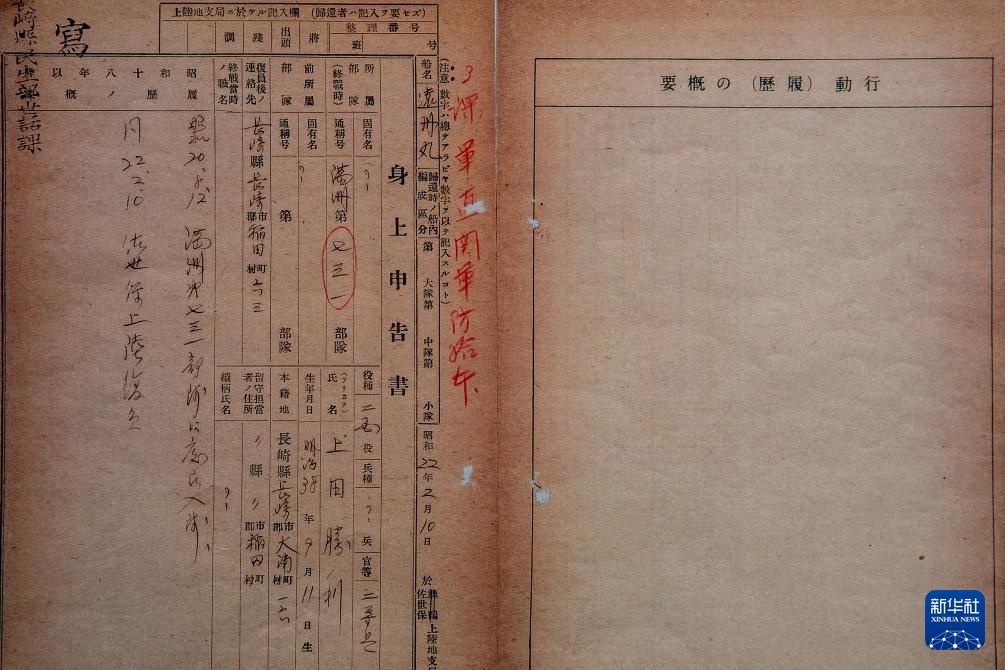 行動（歴履）の概要
上陸地支局ニ於ケル記入欄（歸還者ハ記入ヲ要セズ）
整理番号
班
号
將
出頭
殘
調
寫
長崎縣民生部世話課
（注意）数字ハ總テアラビヤ数字ヲ以テ記入スルコト）
船名
歸還時ノ船内編成區分
第
大隊第
中隊第
小隊
昭和22年2月10日
於
舞鶴
佐世保
上陸地支局
身上申告書
所属部隊（終戰時）
固有名
通稱号
満洲第七三一部隊
前所属部隊
固有名
通稱号
第
部隊
復員後ノ連絡先
長崎縣長崎市郡稲田町村六三
終戰當時ノ職名
役種
役
兵種
兵
官等
氏名（フリカナ）
上田勝利
生年月日
明治38年9月11日生
本籍地
長崎縣長崎市郡大浦町村一六
留守担當者ノ住所
〃縣〃市郡稲田町村
續柄氏名
昭和十八年以
履歴ノ概
昭和20.5.12 満洲第七三一部隊
同22.2.10 佐世保上陸復員
新华社
XINHUA NEWS